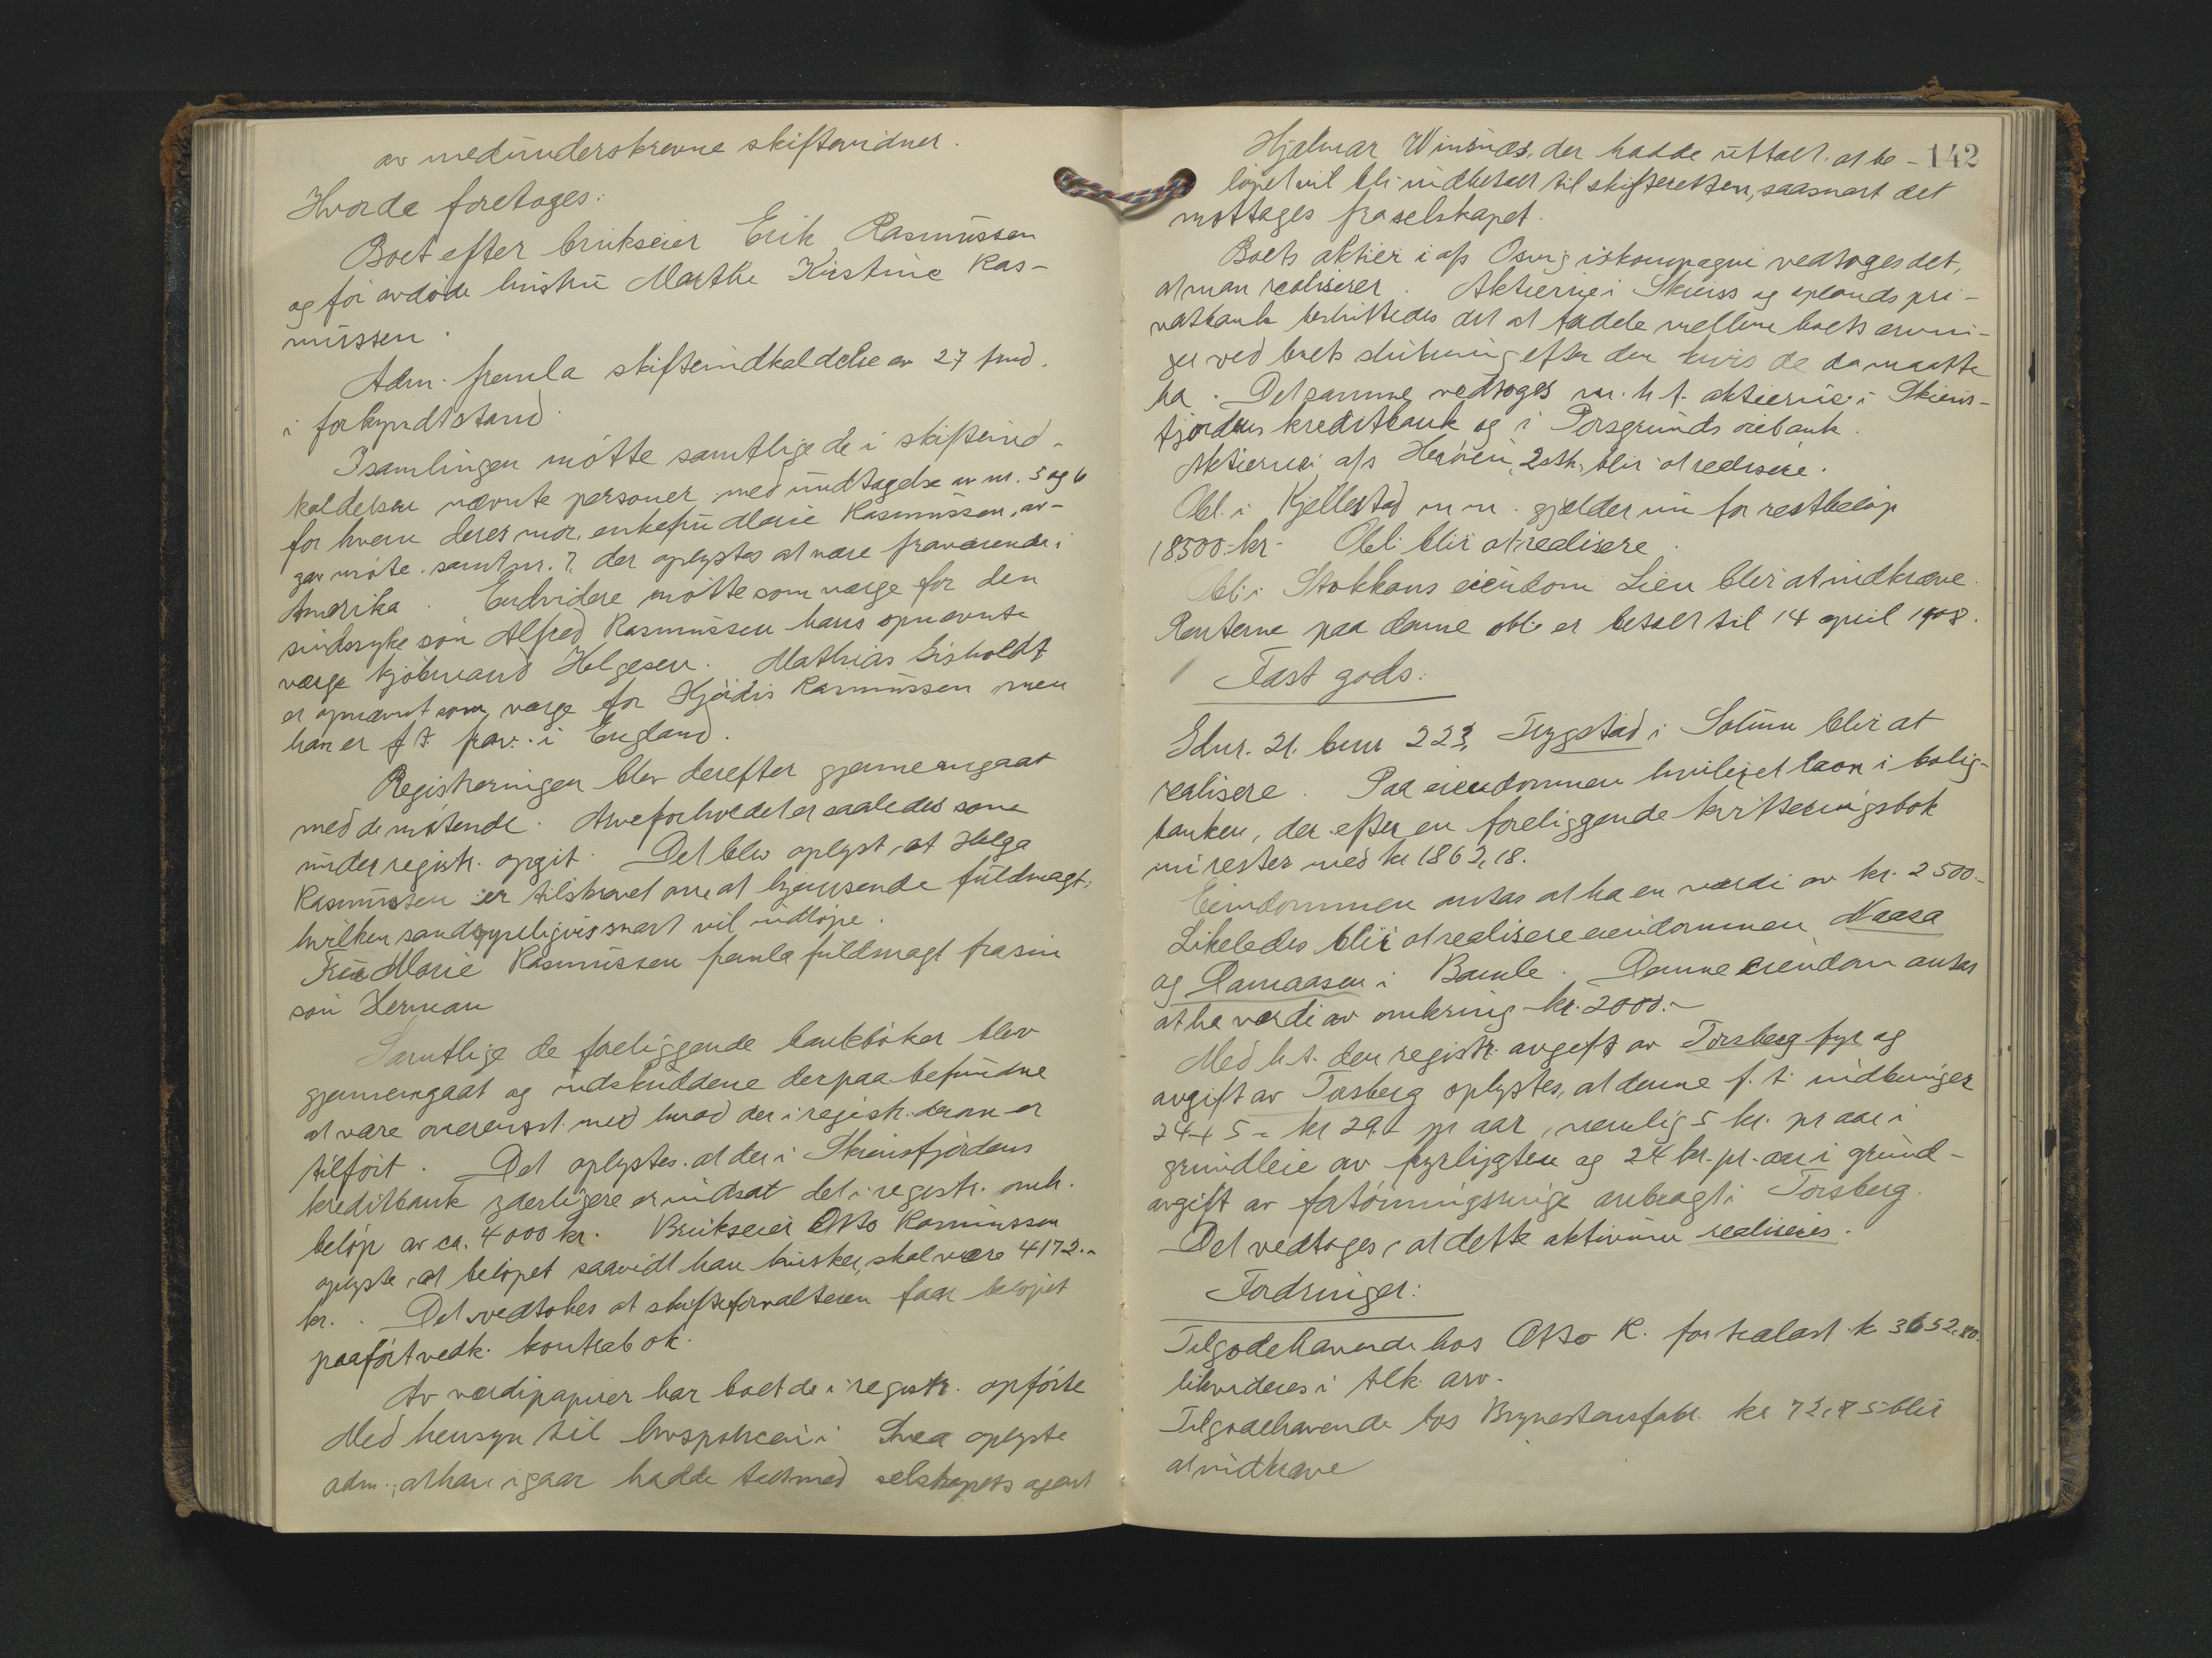 av medunderskrevne skiftevidner.
Hvorda foretoges:
Boet efter brukseier Erik Rasmussen
og før avdøde hustru Marthe Kirstine Ras-
mussen.
Adm. fremla skifteindkaldelse av 27 f.md.
i forkyndt stand.
I samlingen møtte samtlige de i skifteind-
kaldelsen nævnte personer med undtagelse av nr. 5 og 6
for hvem deres mor, enkefru Marie Rasmussen, av-
gav møte. samt nr. 7, der oplystes at være fraværende i
Amerika. Endvidere møtte som værge for den
sindssyke søn Alfred Rasmussen hans opnævnte
værge kjøbmand Helgesen. Mathias Gisholdt
er opnævnt som værge for Hjørdis Rasmussen men
han er f.t. frav. i England.
Registreringen blev derefter gjennemgaat
med de møtende. Arveforholdet er saaledes som
under registr. opgit. Det blev oplyst, at Helga
Rasmussen er tilskrevet om at hjemsende fuldmagt,
hvilken sandsynligvis snart vil indløpe.
Fru Marie Rasmussen fremla fuldmagt fra sin
søn Herman
Samtlige de foreliggende bankbøker blev
gjennemgaat og indskuddene derpaa befundne
at være overensst. med hvad der i registr. derom er
tilført. Det oplystes at der i Skiensfjordens
kreditbank yderligere er indsat det i registr. omh.
beløp av ca. 4000 kr. Brukseier Otto Rasmussen
oplyste at beløpet saavidt han husker, skal være 4172.-
kr. Det vedtokes at skifteforvalteren faar beløpet
paaført vedk. kontrabok.
Av værdipapirer har boet de i registr. opførte
Med hensyn til livspolicen i Svea oplyste
adm., at han igaar hadde talt med selskapets agent
142
Hjalmar Winsnæs, der hadde uttalt at be-
løpet vil bli indbetalt til skifteretten, saasnart det
mottages fra selskapet.
Boets aktier i a/s Osvig iskompagni vedtoges det,
at man realiserer. Aktierne i Skiens og oplands pri-
vatbank besluttedes det at fordele mellem boets arvin-
ger ved boets slutning efter den kurs de da maatte
ha. Det samme vedtoges m.h.t. aktierne i Skiens-
fjordens kreditbank og i Porsgrunds viebank.
Aktierne i a/s Herøen, 2 stk. blir at realisere.
Obl. i Kjellestad m.m. gjælder nu for restbeløp
18500.- kr. Obl. blir at realisere.
Obl. i Stokkens eiendom Lien blir at indkræve.
Renterne paa denne obl. er betalt til 14 april 1908.
Fast gods:
Gdnr. 21. bnr 223, Trygstad i Solum blir at
realisere. Paa eiendommen hviler et laan i bolig-
banken, der efter en foreliggende kvitteringsbok
nu rester med kr 1862,18.
Eiendommen antas at ha en værdi av kr. 2500.-
Likeledes blir at realisere eiendommen Naasa
og Ramaasen i Bamle. Denne eiendom antas
at ha værdi av omkring kr. 2000.-
Med h.t. den registr. avgift av Torsberg fyr og
avgift av Torsberg oplystes, at denne f.t. indbringer
24 + 5 = kr 29.- pr aar, nemlig 5 kr. pr aar i
grundleie av fyrlygten og 24 kr. pr. aar i grund-
avgift av fortøiningsringe anbragt i Torsberg.
Det vedtoges, at dette aktivum realiseres.
Fordringer:
Tilgodehavende hos Otto R. for trælast kr 3652,80.
likvideres i tilk. arv.
Tilgodehavende hos Brynestensfabr. kr 72,75 blir
at indkræve